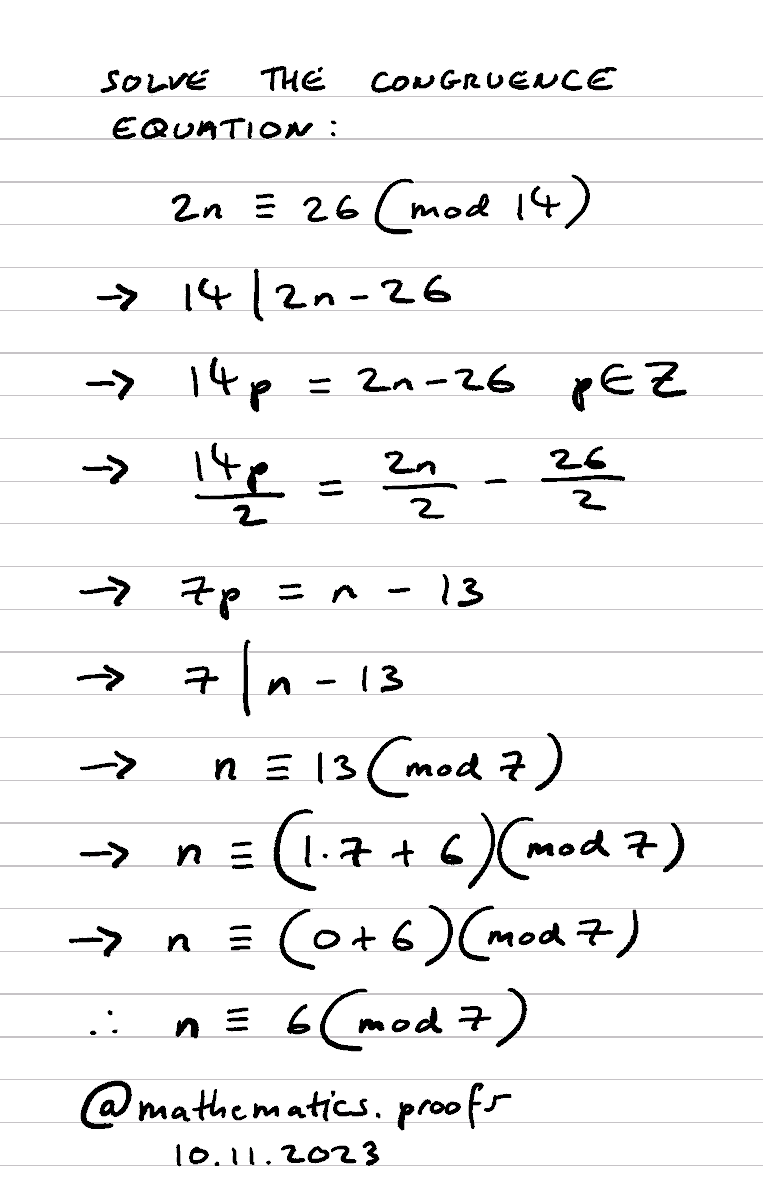 SOLVE THE CONGRUENCE
EQUATION:
2n ≡ 26 (mod 14)
→ 14 | 2n - 26
→ 14p = 2n - 26 p ∈ Z
→ 14p/2 = 2n/2 - 26/2
→ 7p = n - 13
→ 7 | n - 13
→ n ≡ 13 (mod 7)
→ n ≡ (1·7 + 6)(mod 7)
→ n ≡ (0 + 6)(mod 7)
∴ n ≡ 6 (mod 7)
@mathematics.proofs
10.11.2023